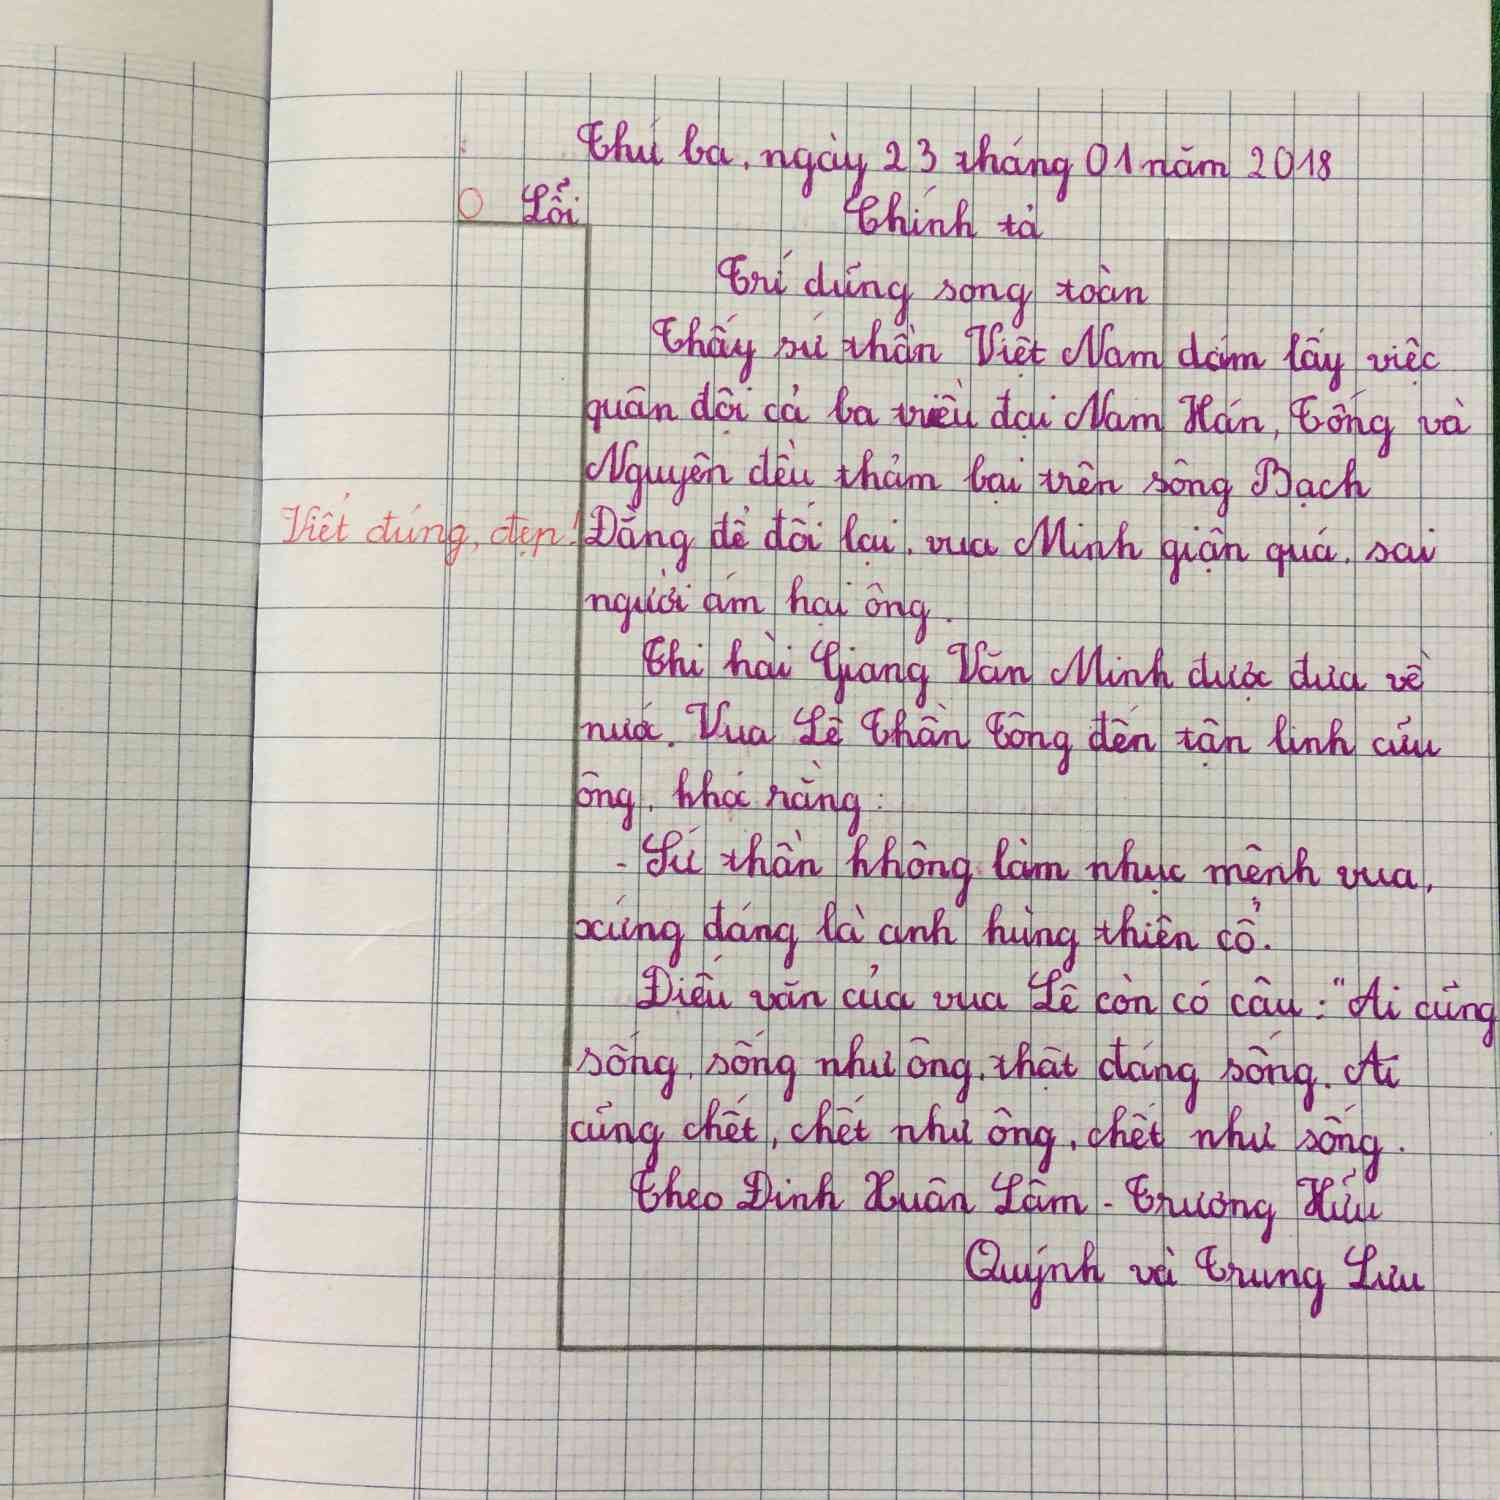 Thứ ba, ngày 23 tháng 01 năm 2018
0 Lỗi
Chính tả
Trí dũng song toàn
Thấy sứ thần Việt Nam dám lấy việc
quân đội cả ba triều đại Nam Hán, Tống và
Nguyên đều thảm bại trên sông Bạch
Viết đúng, đẹp!
Đằng để đối lại, vua Minh giận quá, sai
người ám hại ông.
Thi hài Giang Văn Minh được đưa về
nước. Vua Lê Thần Tông đến tận linh cữu
ông, khóc rằng:
- Sứ thần không làm nhục mệnh vua,
xứng đáng là anh hùng thiên cổ.
Điếu văn của vua Lê còn có câu: "Ai cũng
sống, sống như ông, thật đáng sống. Ai
cũng chết, chết như ông, chết như sống.
Theo Đinh Xuân Lâm - Trương Hữu
Quýnh và Trung Lưu